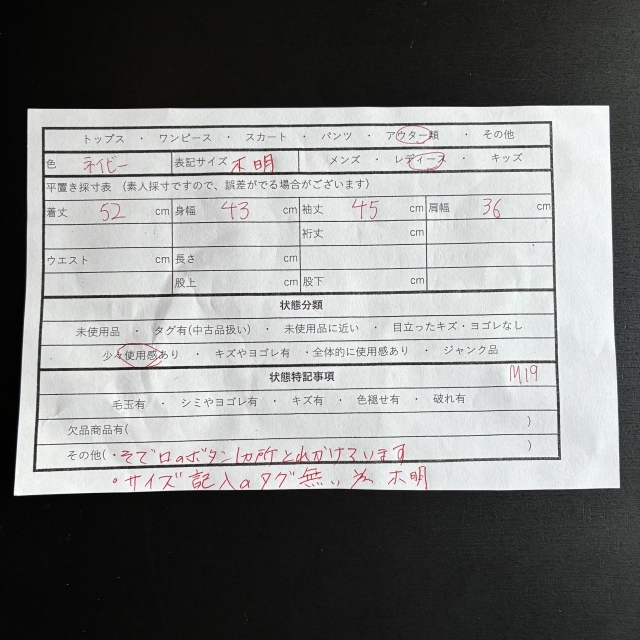 トップス ・ ワンピース ・ スカート ・ パンツ ・ アウター類 ・ その他
色 ネイビー 表記サイズ 不明 メンズ ・ レディース ・ キッズ
平置き採寸表 (素人採寸ですので、誤差がでる場合がございます)
着丈 52 cm 身幅 43 cm 袖丈 45 cm 肩幅 36 cm
裄丈 cm
ウエスト cm 長さ cm
股上 cm 股下 cm
状態分類
未使用品 ・ タグ有(中古品扱い) ・ 未使用品に近い ・ 目立ったキズ・ヨゴレなし
少々使用感あり ・ キズやヨゴレ有 ・全体的に使用感あり ・ ジャンク品
状態特記事項 M19
毛玉有 ・ シミやヨゴレ有 ・ キズ有 ・ 色褪せ有 ・ 破れ有
欠品商品有( )
その他( ・そで口のボタン1カ所とれかけています )
・サイズ記入のタグ無い為 不明